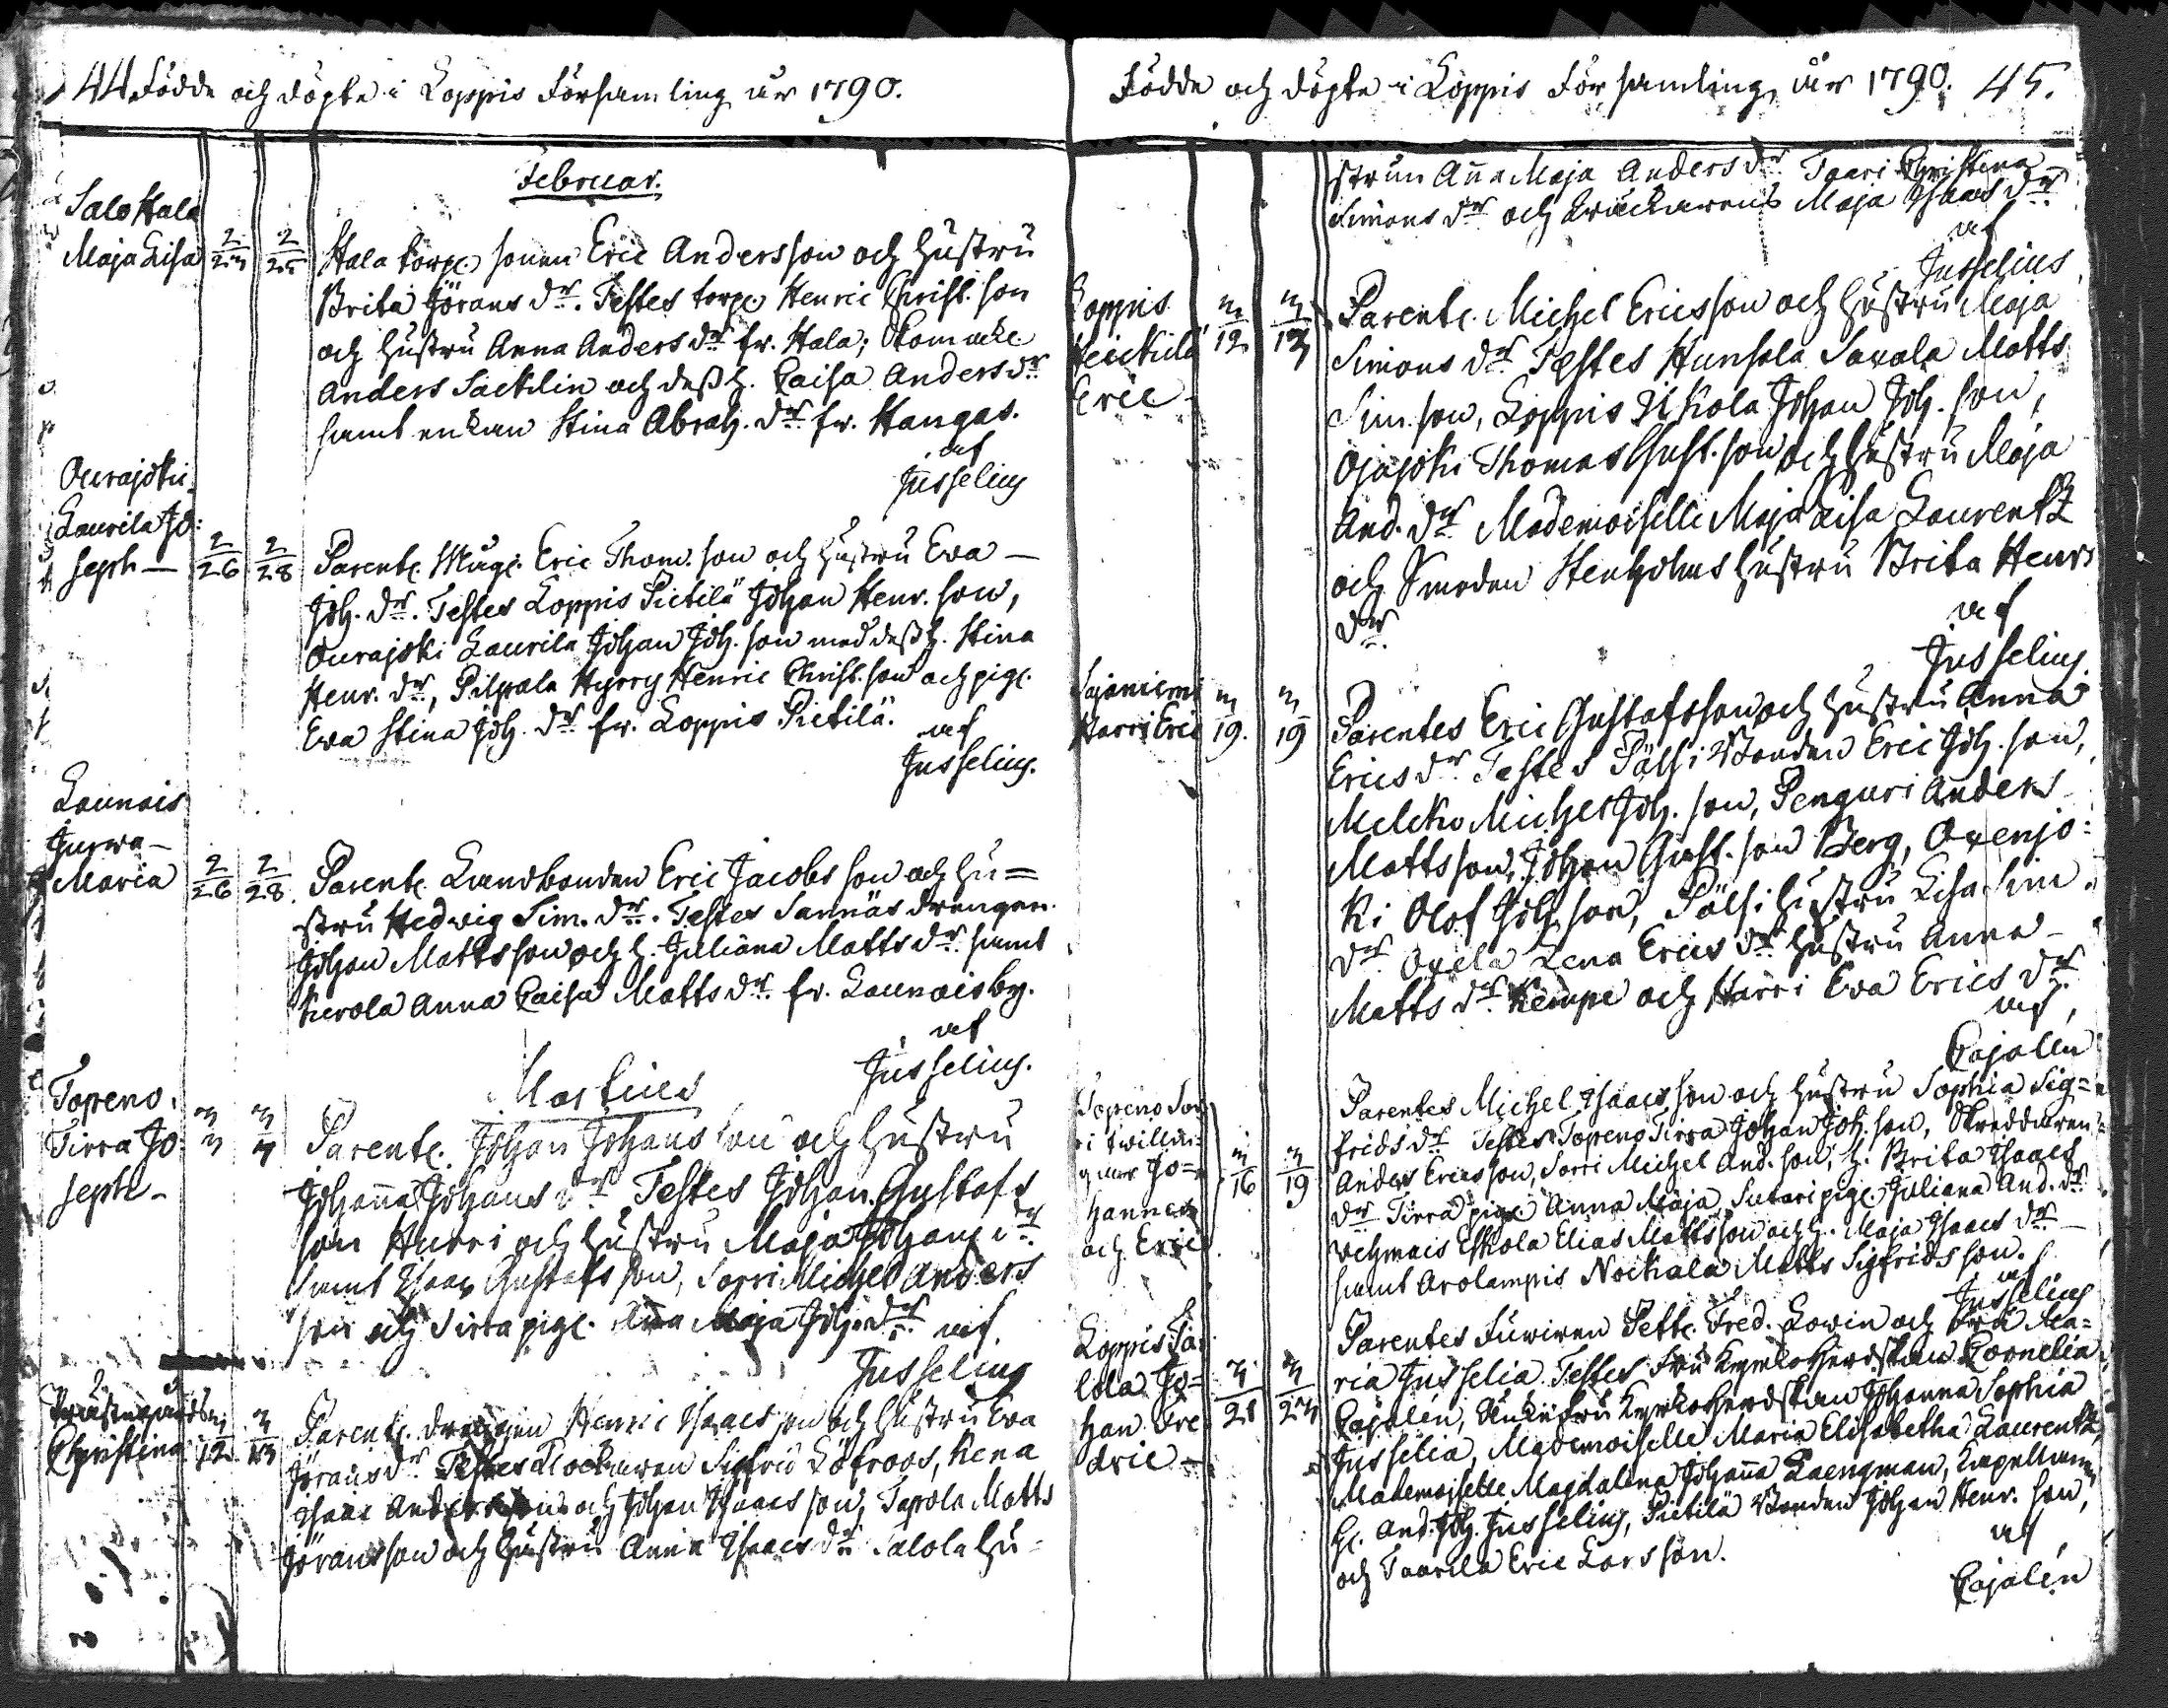 44. Födde och döpte i Loppis Församling år 1790.
Februar.
Salo Hala
Maja Lisa 2/23 2/25
Hala torp. sonen Eric Andersson och hustru
Brita Jörans dr. Testes torp. Henric Christ. son
och hustru Anna Anders dr fr. Hala;
Anders Sacklin och dess h. Caisa Anders dr
samt enkan Stina Abrah. dr fr. Kangas.
af
Jusselius
Ourajoki
Laurila Jo:
seph — 2/26 2/28
Parent. Eric Thom. son och hustru Eva —
Joh. dr. Testes Loppis Pietilä Johan Henr. son,
Ourajoki Laurila Johan Joh. son med dess h. Stina
Henr. dr, Pilpala Hyrry Henric Christ. son och pig.
Eva Stina Joh. dr fr. Loppis Pietilä.
af
Jusselius.
Launois
Jurwa —
Maria 2/26 2/28
Parent. Landbonden Eric Jacobs son och hu=
stru Hedwig Sim. dr. Testes Sannäs drengen
Johan Matts son och h. Juliana Matts dr samt
Kerola Anna Caisa Matts dr fr. Launois by.
af
Jusselius.
Martius
Topeno
Tirra Jo
seph — 3/3 3/4
Parent. Johan Johans son och hustru
Johanna Johans dr Testes Johan Gustafs
son Hurri och hustru Maja Johans dr
samt Isaac Gustafs son, Sorri Michel Anders
son och Tirra pig. Anna Maja Joh. dr af
Jusselius
Prästegårds
Christina 3/12 3/13
Parent. drengen Henric Isaacs son och hustru Eva
Jörans dr Testes Klockaren Sigfrid Löfroos,
Isaac Andersson och Johan Isaacs son, Tapola Matts
Jörans son och hustru Anna Isaacs dr Salola hu=
Födde och döpte i Loppis Församling år 1790. 45.
strun Anna Maja Anders dr Taari Christina
Simons dr och Maja Isaacs dr
af
Jusselius
Loppis
Heickilä
Eric 3/12 3/13
Parent. Michel Ericsson och hustru Maja
Simons dr Testes Hunsala Savala Matts
Sim. son, Loppis Ukola Johan Joh. son,
Ojajoki Thomas Gust. son och hustru Maja
And. dr Mademoiselle Maja Caisa Laurentz
och Smeden Stenholms hustru Brita Henr.
dr.
af
Jusselius.
Sajaniemi
Harri Eric 3/19. 3/19
Parentes Eric Gustafsson och hustru Anna
Erics dr Testes Pälsi Bonden Eric Joh. son,
Melcku Michel Joh. son, Penguri Anders
Mattsson, Johan Gust. son Berg, Ourajo:
ki Olof Joh. son, Pälsi hustru Lisa Sim.
dr Oxela Lena Erics dr hustru Anna —
Matts dr Kempe och Harri Eva Erics dr
af
Cajalén
Topeno Sor
ri twillin=
gar Jo=
hannes
och Eric 3/16 3/19
Parentes Michel Isaacs son och hustru Sophia Sig=
frids dr Testes Topeno Tirra Johan Joh. son, Skreddaren
Anders Ericsson, Sorri Michel And. son, h. Brita Isaacs
dr Tirra pig. Anna Maja, Sutari pig. Juliana And. dr
Eskola Elias Mattsson och h. Maja Isaacs dr —
samt Arolampis Nockala Matts Sigfrids son.
af
Jusselius
Loppis
Jo=
han Fre
dric — 3/21 3/23
Parentes Pett. Fred. Lowin och Fru Ma=
ria Jusselia. Testes Fru Kyrkoherdskan Cornelia
Cajalén, Enkefru Kyrkoherdskan Johanna Sophia
Jusselia, Mademoiselle Maria Elisabetha Laurentz,
Mademoiselle Magdalena Johanna Laengman, Kapellanen
H. And. Joh. Jusselius, Pietilä Bonden Johan Henr. son,
och Taarila Eric Larsson.
af
Cajalén